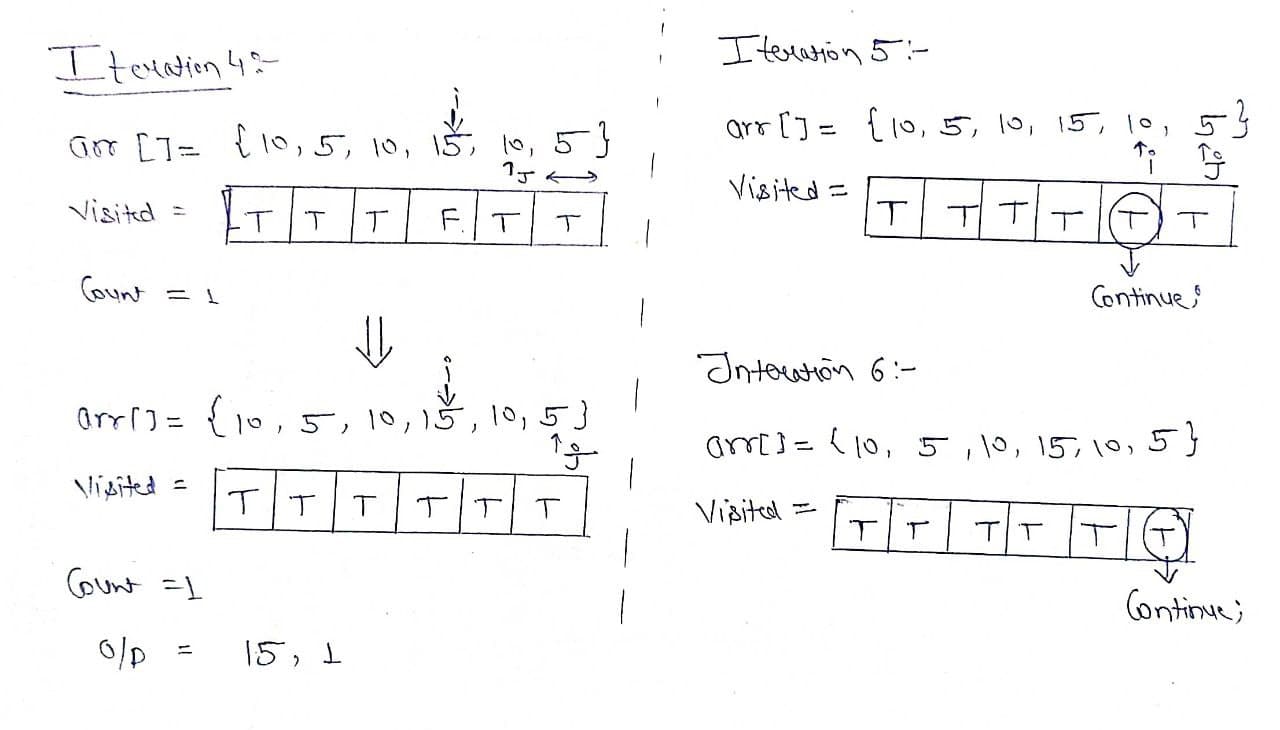 Iteration 4:-
i
arr []= {10, 5, 10, 15, 10, 5}
J
Visited = T T T F T T
Count = 1
i
arr[]= {10, 5, 10, 15, 10, 5}
J
Visited = T T T T T T
Count = 1
O/P = 15, 1
Iteration 5:-
arr[]= {10, 5, 10, 15, 10, 5}
i J
Visited = T T T T T T
Continue;
Interation 6:-
arr[]= {10, 5, 10, 15, 10, 5}
Visited = T T T T T T
Continue;